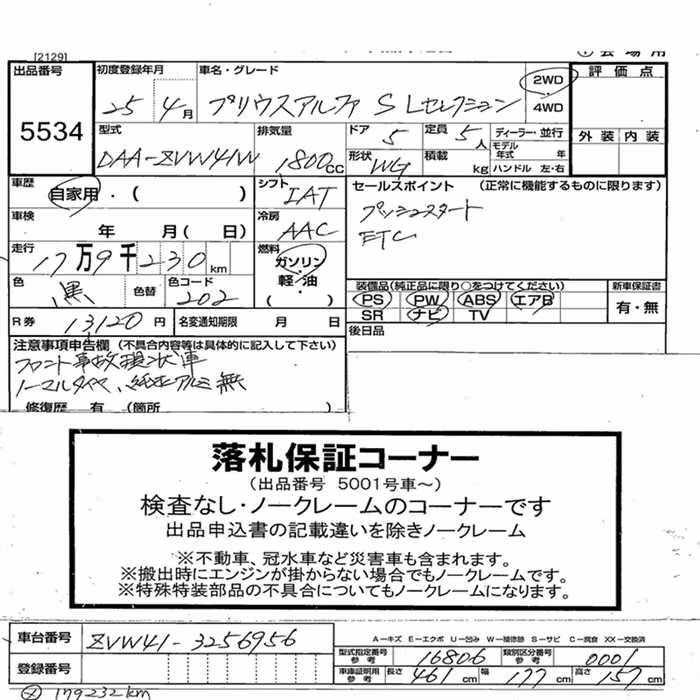 [2129]
出品番号 初度登録年月 車名・グレード 2WD 評価点
5534 25 4月 プリウスアルファ S Lセレクション 4WD
型式 排気量 ドア 定員 ディーラー・並行 外装 内装
DAA-ZVW41W 1800cc 5 5人 モデル年式 年
形状 WG 積載 kg ハンドル 左・右
車歴 自家用・( ) シフト IAT セールスポイント (正常に機能するものに限ります)
車検 年 月( 日) 冷房 AAC プッシュスタート
ETC
走行 17万9千230km 燃料 ガソリン・軽・油 ( )
色 黒 色替 色コード 202 装備品(純正品に限り○をつけてください) 新車保証書
PS PW ABS エアB 有・無
SR ナビ TV
R券 13120円 名変通知期限 月 日 後日品
注意事項申告欄 (不具合内容等は具体的に記入して下さい)
フロント事故現状車
ノーマルタイヤ、純正アルミ無
修復歴 有 (箇所 )
落札保証コーナー
(出品番号 5001号車~)
検査なし・ノークレームのコーナーです
出品申込書の記載違いを除きノークレーム
※不動車、冠水車など災害車も含まれます。
※搬出時にエンジンが掛からない場合でもノークレームです。
※特殊特装部品の不具合についてもノークレームになります。
車台番号 ZVW41-3256956 A-キズ E-エクボ U-凹み W-補修跡 S-サビ C-腐食 XX-交換済
型式指定番号 参考 16806 類別区分番号 参考 0001
登録番号 車庫証明用 参考 長さ 461 cm 幅 177 cm 高さ 157 cm
179232km